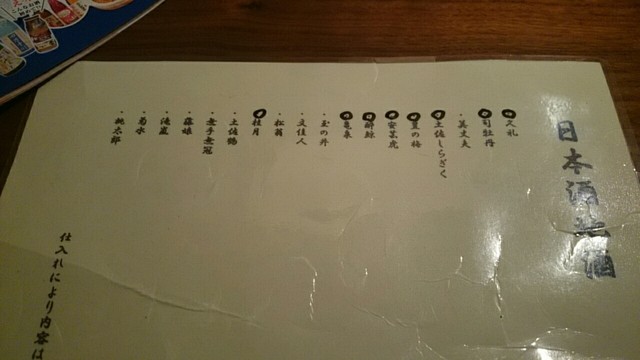 日本酒地酒
久礼
司牡丹
・美丈夫
土佐しらぎく
豊の梅
安芸虎
酔鯨
亀泉
・玉の井
・文佳人
・松翁
桂月
・土佐鶴
・無手無冠
・藤娘
・滝嵐
・菊水
・桃太郎
仕入れにより内容は